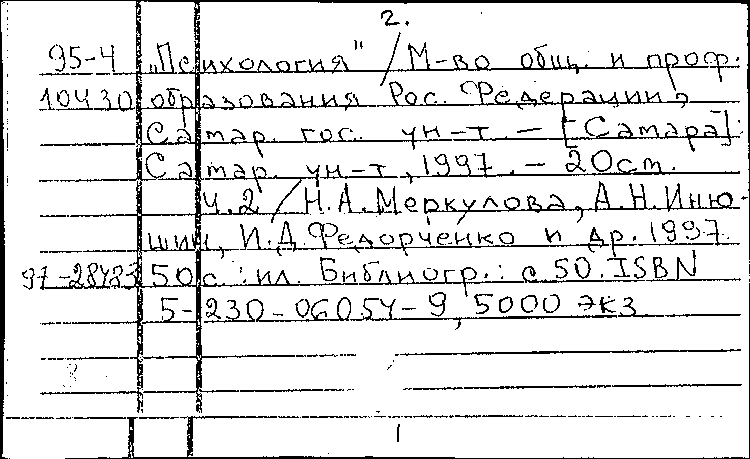 2.
95-4 „Психология" / М-во общ. и проф.
10430 образования Рос. Федерации,
Самар. гос. ун-т. – [Самара]:
Самар. ун-т, 1997. – 20 см.
Ч.2 / Н.А.Меркулова, А.Н.Иню-
шин, И.Д.Федорченко и др. 1997.
97-28483 50 с. : ил. Библиогр.: с 50. ISBN
5-230-06054-9, 5000 экз
1